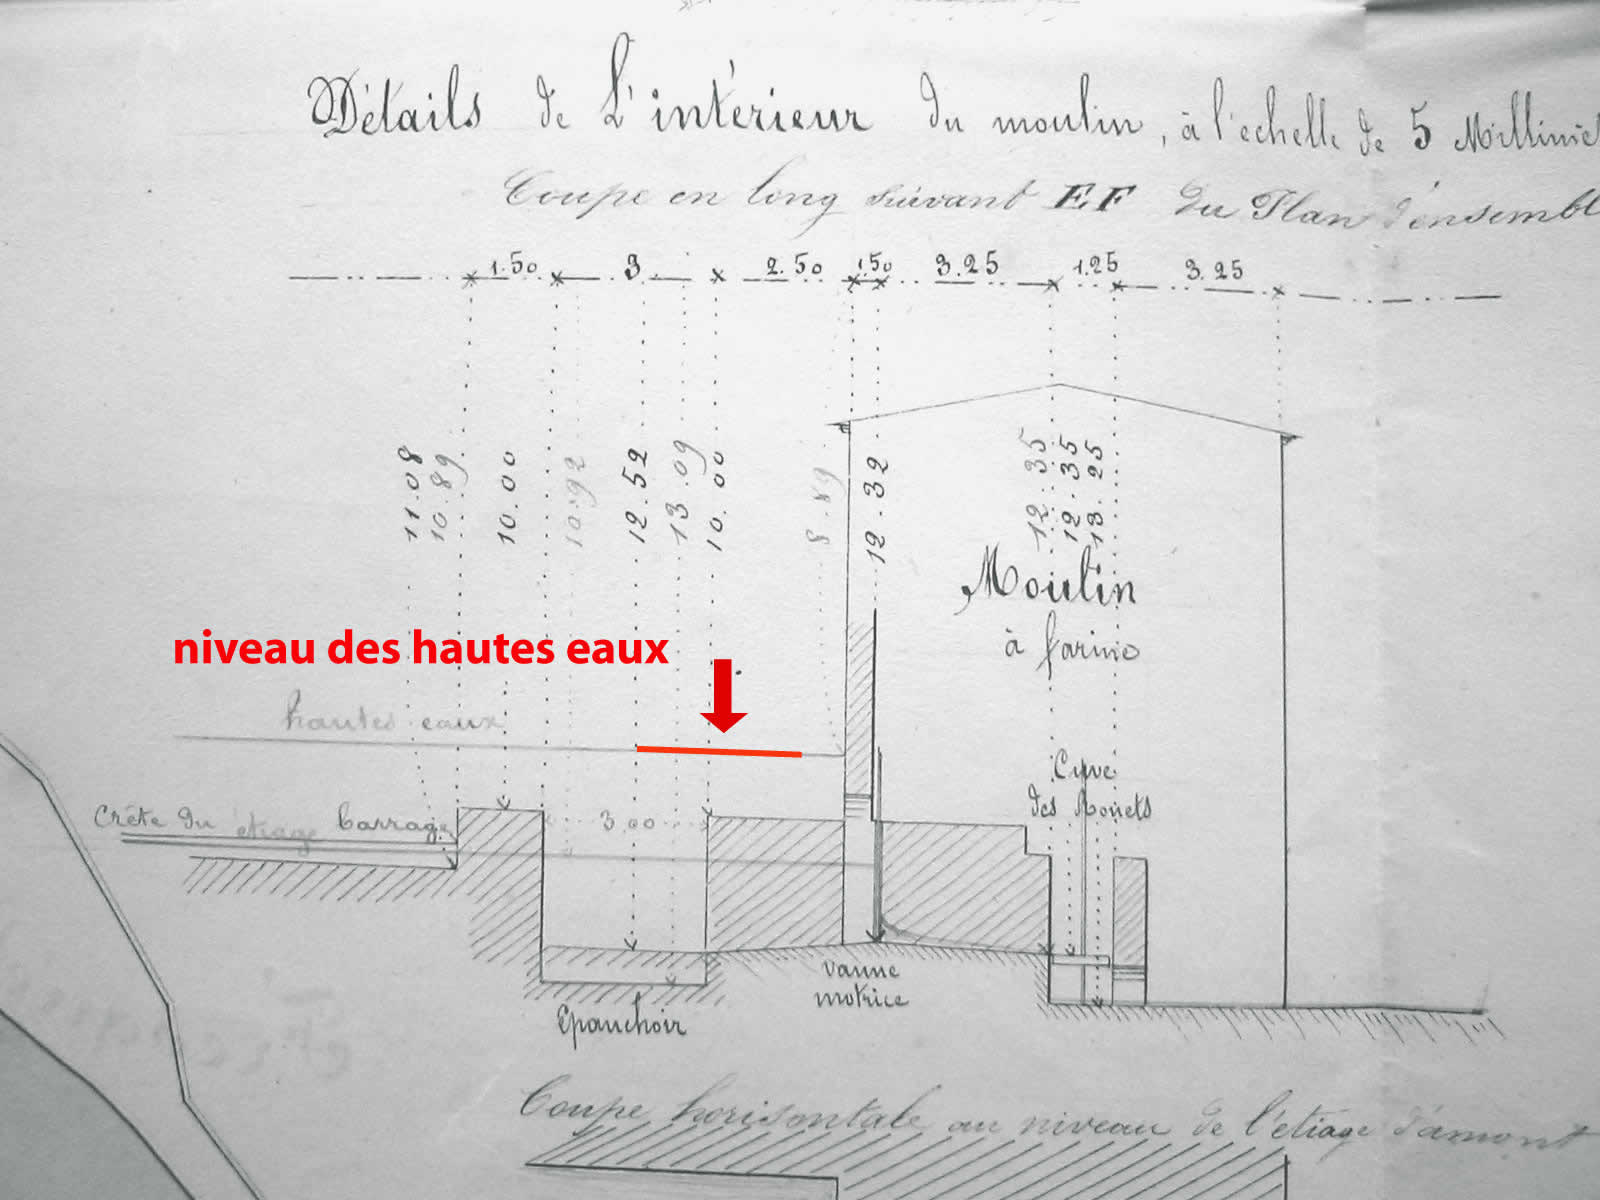 Détails de L'intérieur du moulin, à l'échelle de 5 Millimèt
Coupe en long suivant EF du Plan d'ensembl
1.50 3 2.50 1.50 3.25 1.25 3.25
11.08 10.89 10.00 10.92 12.52 13.09 10.00 8.89 12.32 12.35 12.35 13.25
Moulin
à farine
niveau des hautes eaux
hautes eaux
Cuve
des Rouets
Crête du étiage barrage
3.00
vanne
motrice
Epanchoir
Coupe horisontale au niveau de l'étiage d'amont